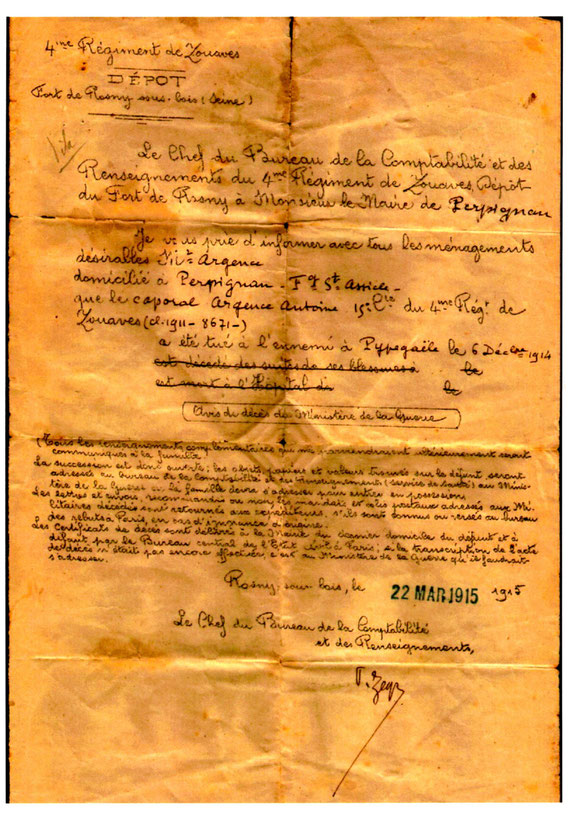 4me Régiment de Zouaves
DÉPOT
Fort de Rosny sous-bois (Seine)
Le Chef du Bureau de la Comptabilité et des
Renseignements du 4me Régiment de Zouaves, Dépôt
du Fort de Rosny à Monsieur le Maire de Perpignan
Je vous prie d'informer avec tous les ménagements
désirables Argence
domicilié à Perpignan - Fg St Assiscle -
que le caporal Argence Antoine 15e Cie du 4me Régt de
Zouaves (cl-1911-8671-)
a été tué à l'ennemi à Pypegaële le 6 Décbre 1914
est décédé des suites de ses blessures à le
est mort à l'Hôpital de le
Avis du décès du Ministère de la Guerre
(Tous les renseignements complémentaires qui me parviendraient ultérieurement seront
communiqués à la famille)
La succession est donc ouverte; les objets, papiers et valeurs trouvés sur le défunt, seront
adressés au Bureau de la Comptabilité et des Renseignements (service de Santé) au Minis-
tère de la Guerre où la famille devra s'adresser pour entrer en possession.
Les lettres et envois, recommandés ou non, les mandats et colis postaux adressés aux Mi-
litaires décédés sont retournés aux expéditeurs s'ils sont connus ou versés au Bureau
des rebuts à Paris, en cas d'ignorance d'iceux.
Les Certificats de décès sont délivrés à la Mairie du dernier domicile du défunt et à
défaut par le Bureau central de l'Etat civil à Paris; si la transcription de l'acte
de décès n'était pas encore effectuée, c'est au Ministère de la Guerre qu'il faudrait
s'adresser.
Rosny sous bois, le 22 MAR 1915 1915
Le Chef du Bureau de la Comptabilité
et des Renseignements,